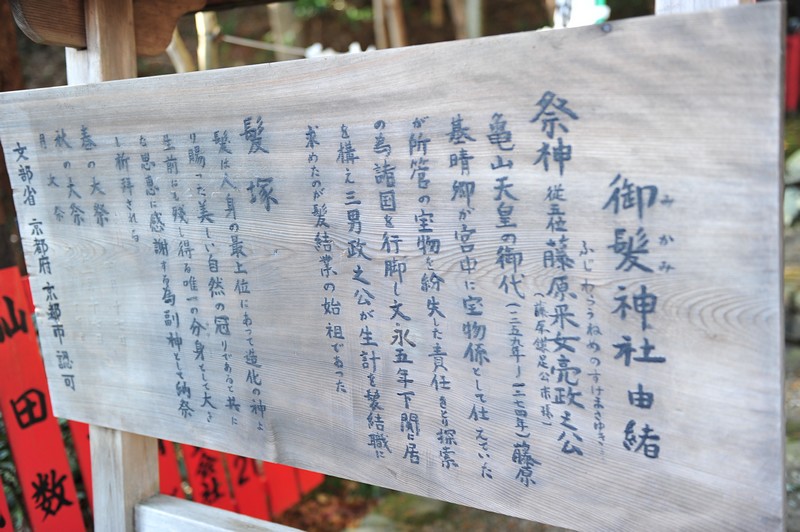 御髪神社由緒
みかみ
祭神 従五位 藤原采女亮政之公
ふじわらうねめのすけまさゆき
亀山天皇の御代 藤原
基晴卿が宮中に宝物係として仕えていた
が所管の宝物を紛失した責任をとり探索
の為諸国を行脚し文永五年下関に居
を構え三男政之公が生計を髪結職に
求めたのが髪結業の始祖であった
髪塚
髪は人身の最上位にあって造化の神よ
り賜った美しい自然の冠りであると共に
生前にも残し得る唯一の分身として大き
な恩恵に感謝する為副神として納祭
し祈拝される
春の大祭
秋の大祭
月次祭
文部省 京都府 京都市 認可
山田
数
会社